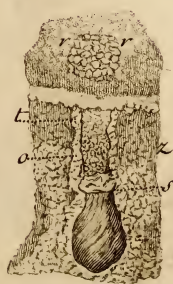 r r
t
o z
s